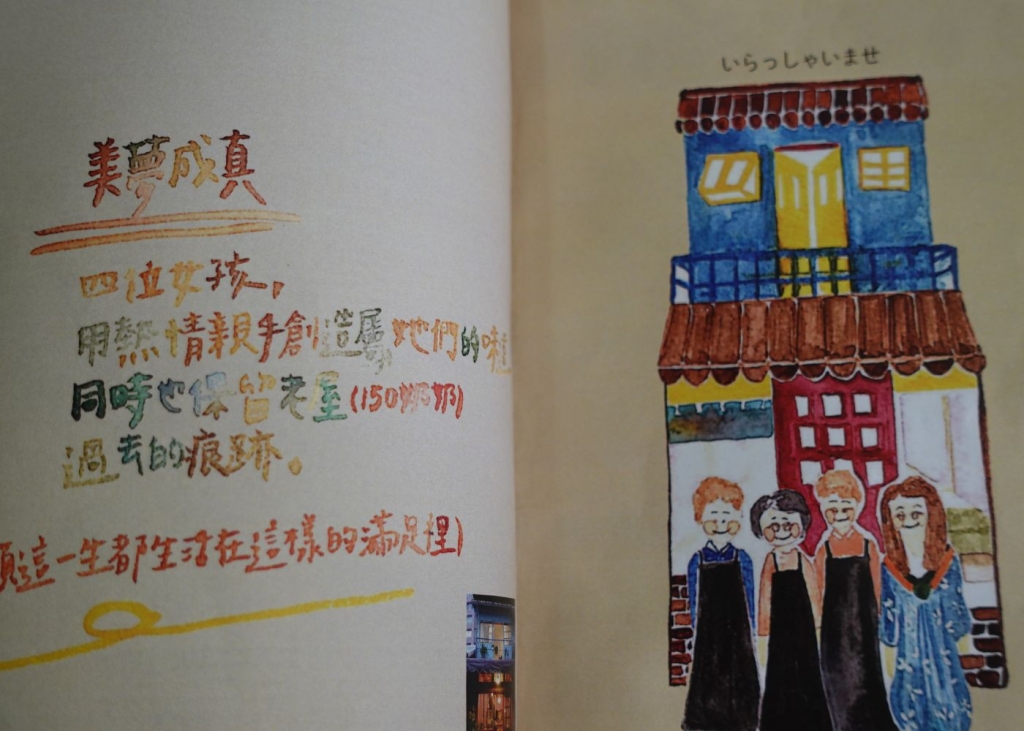 美夢成真
四位女孩，
用熱情親手創造屬她們的
同時也保留老屋(150奶奶)
過去的痕跡。
這一生都生活在這樣的滿足裡)
いらっしゃいませ